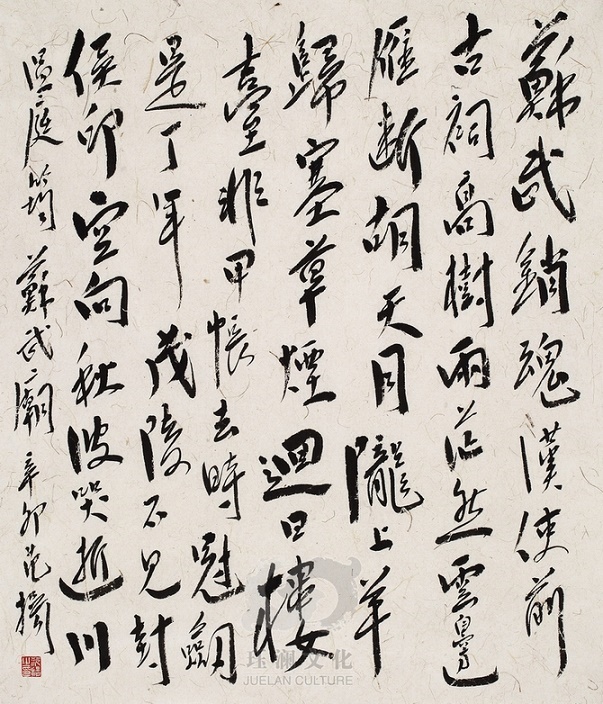 蘇武銷魂漢使前
古祠高樹兩茫然雲邊
雁斷胡天月隴上羊
歸塞草煙迴日樓
臺非甲帳去時冠劍
是丁年茂陵不見封
侯印空向秋波哭逝川
溫庭筠蘇武廟辛卯范揚
珏澜文化
JUELAN CULTURE